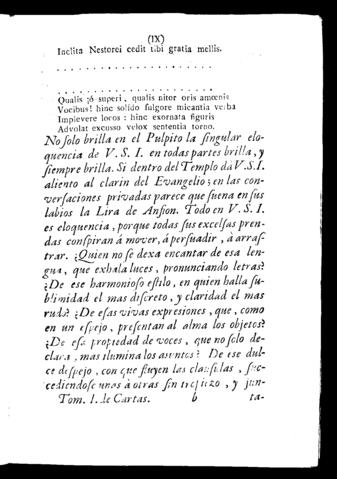 (IX)
Inclita Nestorei cedit tibi gratia mellis.
. . . . . . . . . . . . . . . . . . . . .
. . . . . . . . . . . . . . . . . . . . .
Qualis ¡ó superi, qualis nitor oris amœnis
Vocibus! hinc solido fulgore micantia verba
Implevere locos : hinc exornata figuris
Advolat excusso velox sententia torno.
No ſolo brilla en el Pulpito la ſingular elo-
quencia de V. S. I. en todas partes brilla, y
ſiempre brilla. Si dentro del Templo dá V.S.I.
aliento al clarin del Evangelio; en las con-
verſaciones privadas parece que ſuena en ſus
labios la Lira de Anfion. Todo en V. S. I.
es eloquencia, porque todas ſus excelſas pren-
das conſpiran á mover, á perſuadir, à arraſ-
trar. ¿Quien no ſe dexa encantar de eſa len-
gua, que exhala luces, pronunciando letras?
¿De eſe harmonioſo eſtilo, en quien halla ſu-
blimidad el mas diſcreto, y claridad el mas
rudo? ¿De eſas vivas expreſiones, que, como
en un eſpejo, preſentan al alma los objetos?
¿De eſa propiedad de voces, que no ſolo de-
clara, mas ilumina los aſuntos? De eſe dul-
ce deſpejo, con que fluyen las clauſulas, ſuc-
cediendoſe unas à otras ſin tropiezo, y jun-
Tom. I. de Cartas. b ta-